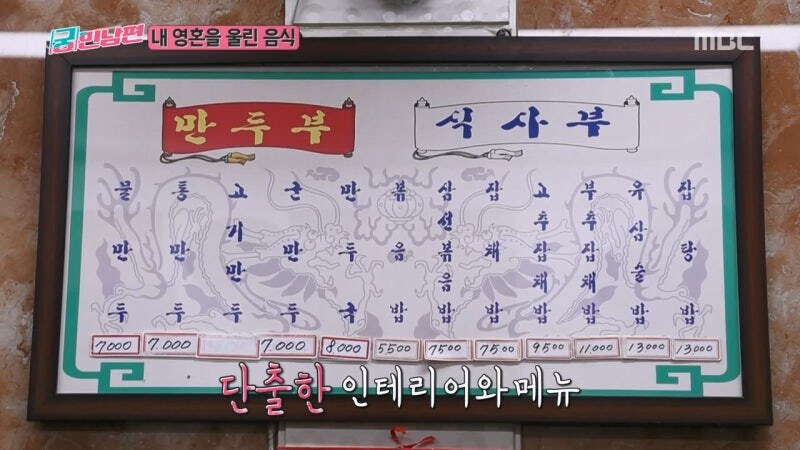 궁민남편
내 영혼을 울린 음식
MBC
만두부
식사부
물만두
통만두
고기만두
군만두
만두국
볶음밥
삼선볶음밥
잡채밥
고추잡채밥
부추잡채밥
유삼슬밥
잡탕밥
7000 7.000 7.000 8.000 5500 7500 7500 9500 11.000 13000 13000
단출한 인테리어와 메뉴